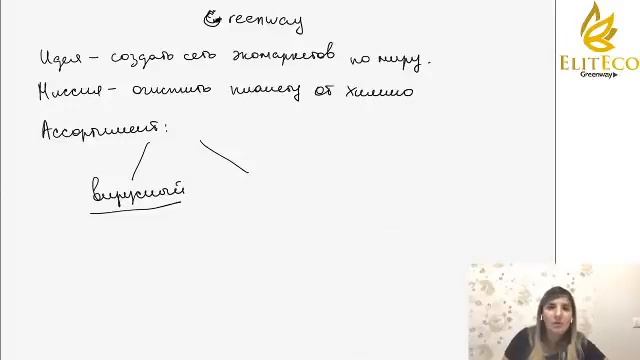 Greenway
Идея – создать сеть экомаркетов по миру.
Миссия – очистить планету от химии
Ассортимент:
вирусный
ELITECO
Greenway